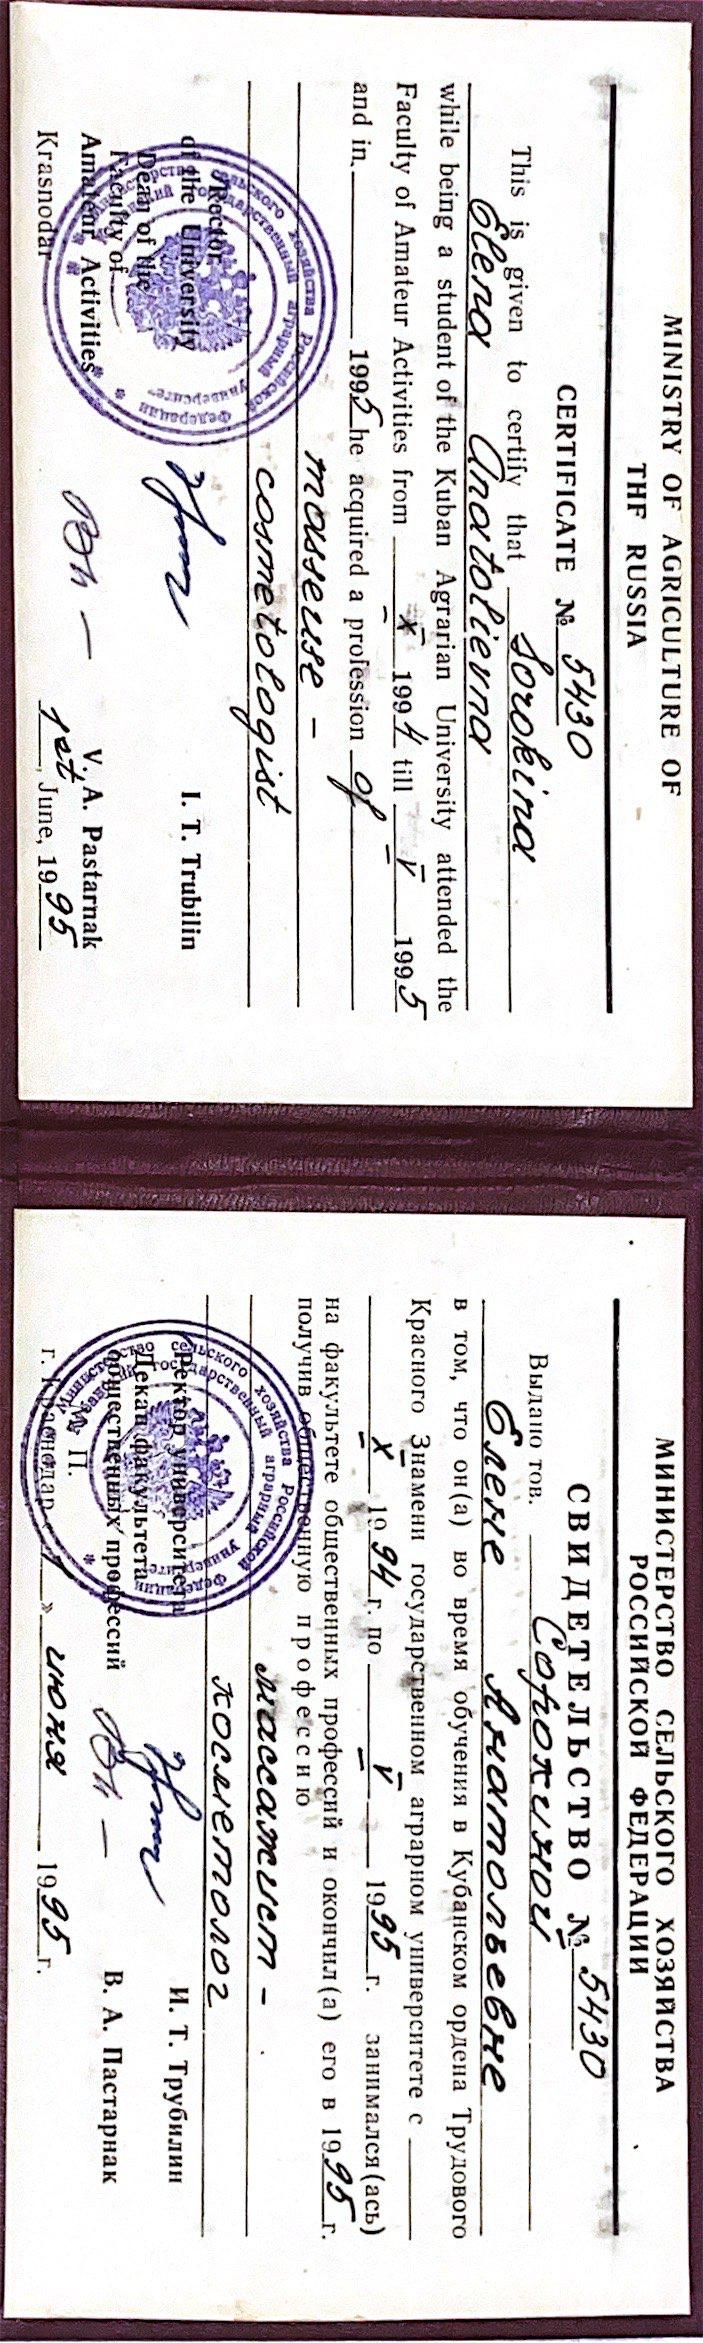 MINISTRY OF AGRICULTURE OF
THF RUSSIA
CERTIFICATE № 5430
This is given to certify that Sorokina
Elena Anatolievna
while being a student of the Kuban Agrarian University attended the
Faculty of Amateur Activities from X 1994 till V 1995
and in 1995 he acquired a profession of
masseuse –
cosmetologist
Rector
of the University I. T. Trubilin
Dean of the
Faculty of
Amateur Activities V. A. Pastarnak
Krasnodar 1st, June, 1995
МИНИСТЕРСТВО СЕЛЬСКОГО ХОЗЯЙСТВА
РОССИЙСКОЙ ФЕДЕРАЦИИ
СВИДЕТЕЛЬСТВО № 5430
Выдано тов. Сорокиной
Елене Анатольевне
в том, что он(а) во время обучения в Кубанском ордена Трудового
Красного Знамени государственном аграрном университете с
X 1994 г. по V 1995 г. занимался(ась)
на факультете общественных профессий и окончил(а) его в 1995 г.
получив общественную профессию
массажист –
косметолог
Ректор университета И. Т. Трубилин
Декан факультета
общественных профессий В. А. Пастарнак
М. П.
г. Краснодар « 1 » июня 1995 г.